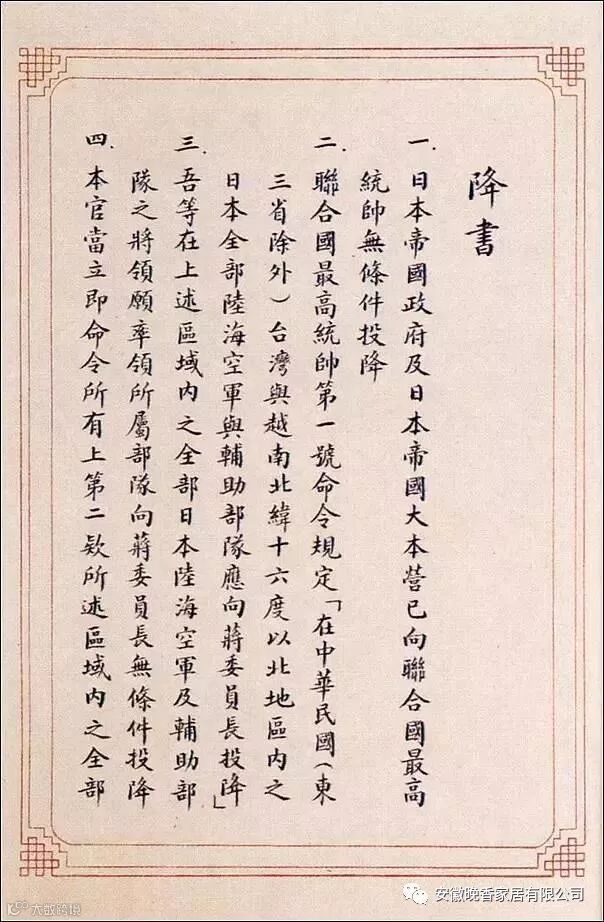 降書
一.日本帝國政府及日本帝國大本營已向聯合國最高
統帥無條件投降
二.聯合國最高統帥第一號命令規定「在中華民國(東
三省除外)台灣與越南北緯十六度以北地區內之
日本全部陸海空軍與輔助部隊應向蔣委員長投降」
三.吾等在上述區域內之全部日本陸海空軍及輔助部
隊之將領願率領所屬部隊向蔣委員長無條件投降
四.本官當立即命令所有上第二欵所述區域內之全部
大数跨境
安徽晚香家居有限公司